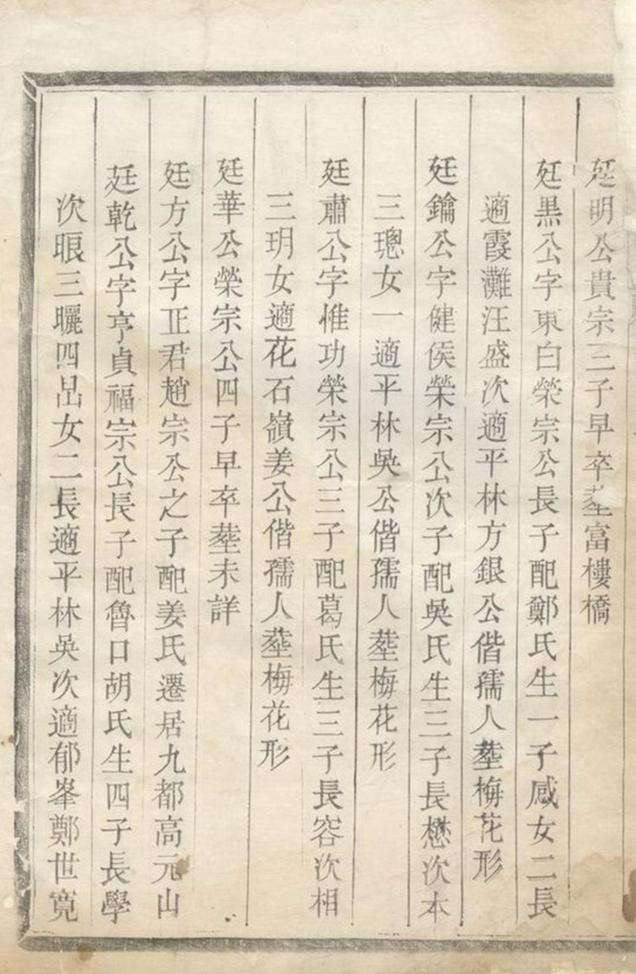 廷明公貴宗三子早卒塟富樓橋
廷黒公字東白榮宗公長子配鄭氏生一子感女二長
適霞灘汪盛次適平林方銀公偕孺人塟梅花形
廷鑰公字健侯榮宗公次子配吳氏生三子長懋次本
三璁女一適平林吳公偕孺人塟梅花形
廷肅公字惟功榮宗公三子配葛氏生三子長容次相
三玥女適花石嶺姜公偕孺人塟梅花形
廷華公榮宗公四子早卒塟未詳
廷方公字正君趙宗公之子配姜氏遷居九都高元山
廷乾公字亨貞福宗公長子配魯口胡氏生四子長學
次眼三曬四旵女二長適平林吳次適郁峯鄭世寬